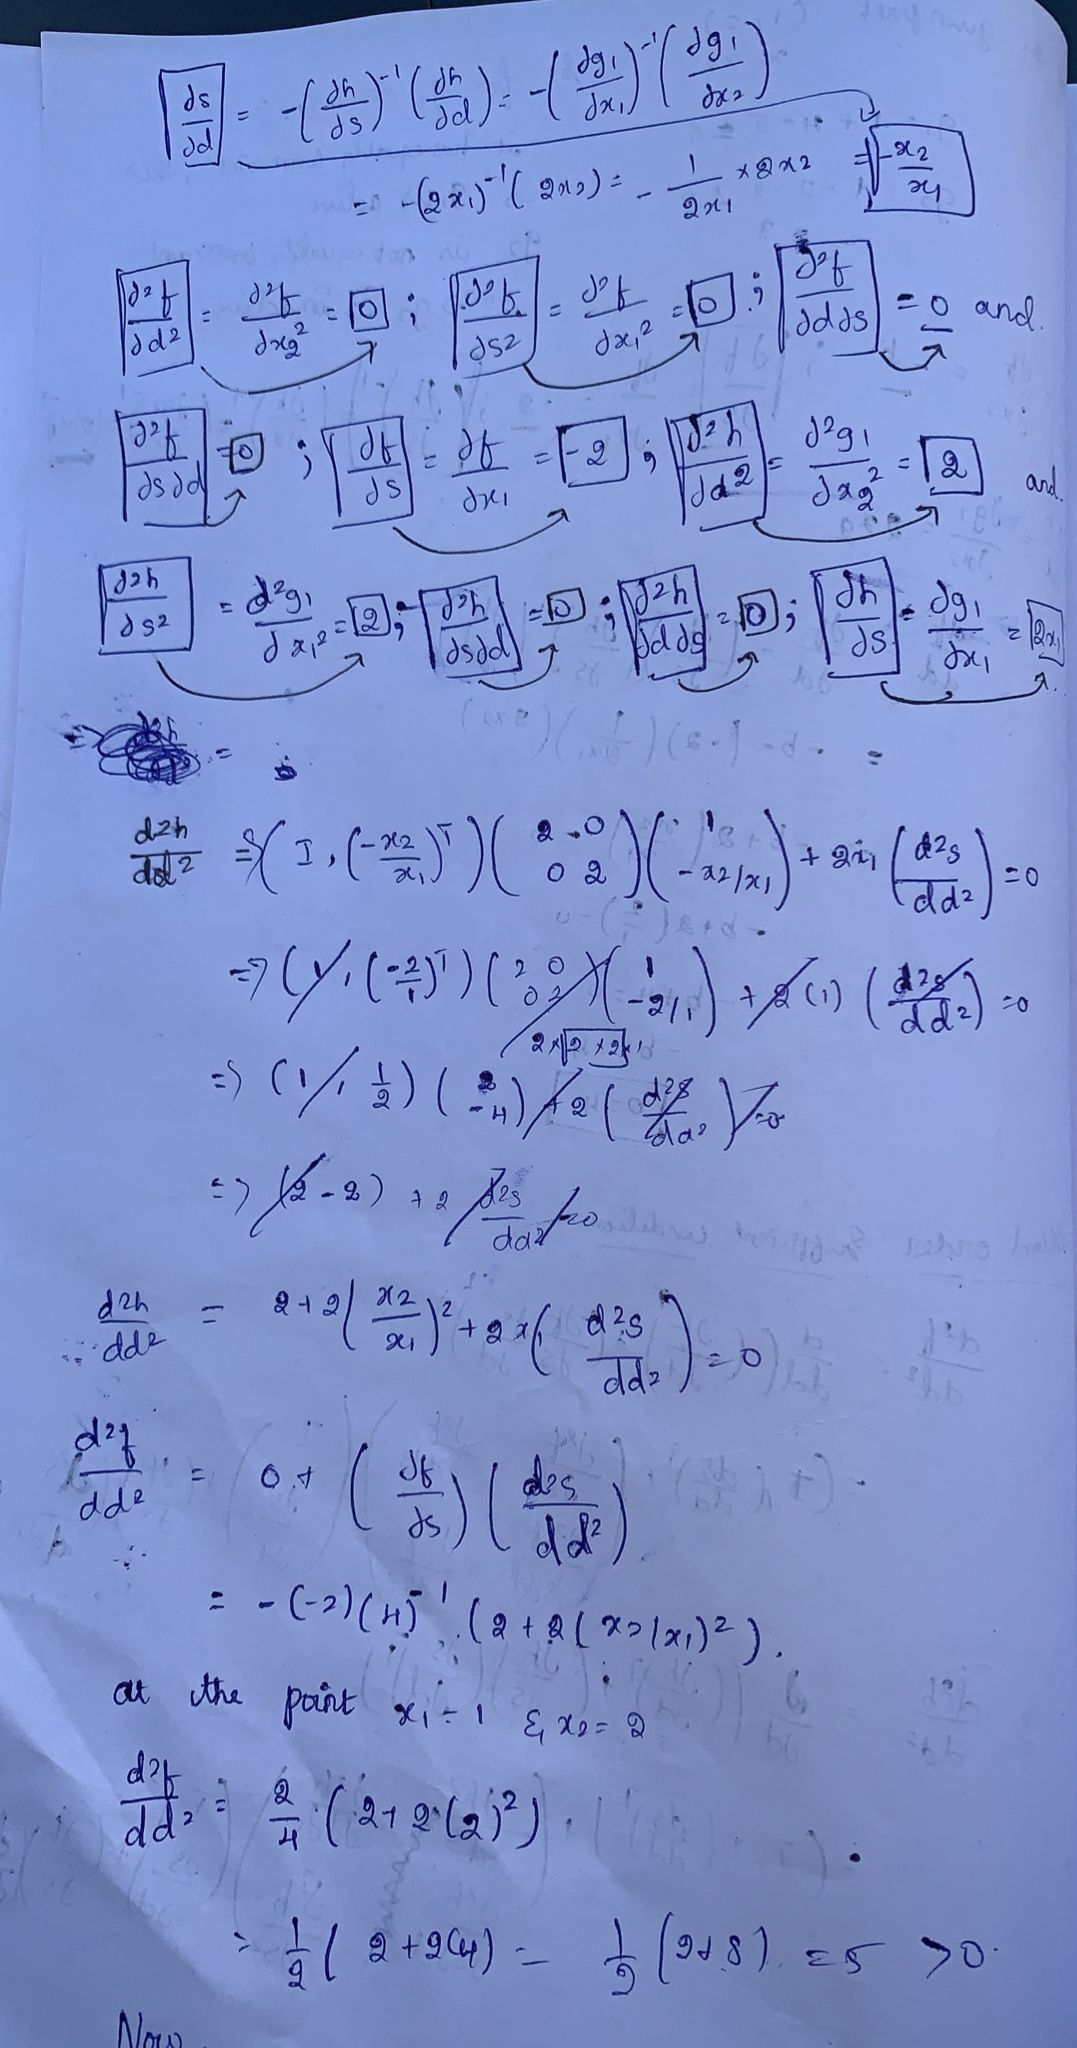 ∂s/∂d = -(∂h/∂s)⁻¹ (∂h/∂d) = -(∂g₁/∂x₁)⁻¹ (∂g₁/∂x₂)
= -(2x₁)⁻¹ (2x₂) = - 1/2x₁ × 2x₂ = -x₂/x₁
∂²f/∂d² = ∂²f/∂x₂² = 0 ; ∂²f/∂s² = ∂²f/∂x₁² = 0 ; ∂²f/∂d∂s = 0 and
∂²f/∂s∂d = 0 ; ∂f/∂s = ∂f/∂x₁ = -2 ; ∂²h/∂d² = ∂²g₁/∂x₂² = 2 and
∂²h/∂s² = d²g₁/∂x₁² = 2 ; ∂²h/∂s∂d = 0 ; ∂²h/∂d∂s = 0 ; ∂h/∂s = ∂g₁/∂x₁ = 2x₁
=
d²h/dd² ⇒ (I, (-x₂/x₁)ᵀ) (2 0 0 2) (1 -x₂/x₁) + 2x₁ (d²s/dd²) = 0
⇒ (1, (-2/1)ᵀ) (2 0 0 2) (1 -2/1) + 2(1) (d²s/dd²) = 0
⇒ (1, 1/2) (2 -4) + 2 (d²s/dd²) = 0
⇒ (2 - 2) + 2 d²s/dd² = 0
∴ d²h/dd² = 2 + 2(x₂/x₁)² + 2x₁ (d²s/dd²) = 0
d²f/dd² = 0 + (∂f/∂s) (d²s/dd²)
= -(-2)(4)⁻¹ (2 + 2(x₂/x₁)²).
at the point x₁ = 1 & x₂ = 2
d²f/dd² = 2/4 (2 + 2(2)²)
= 1/2 (2 + 2(4)) = 1/2 (2+8) = 5 > 0.
Now